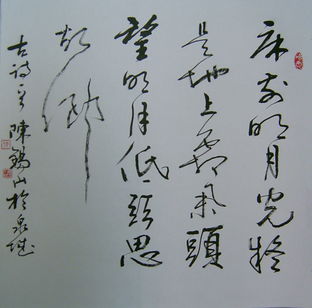 床前明月光疑
是地上霜举頭
望明月低頭思
故鄉
古诗一首 陳錫山於泉城